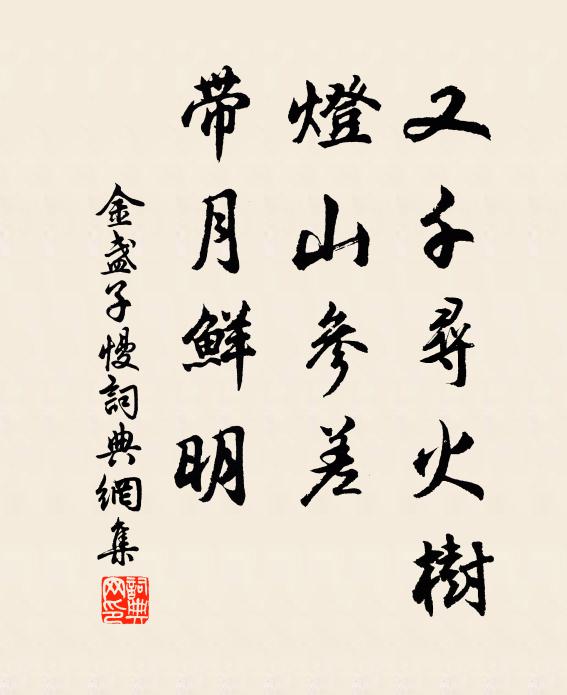 又千尋火樹
燈山參差
帶月鮮明
金盞子慢詞典網集
詞典網印